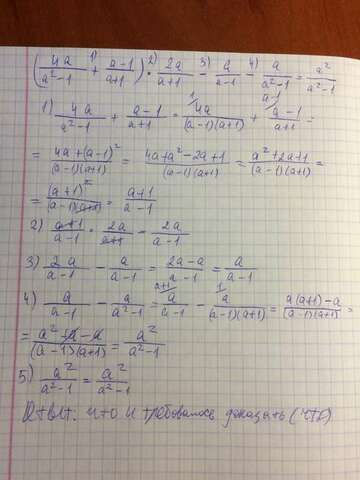 (4a/(a²-1) + (a-1)/(a+1)) · 2a/(a+1) - a/(a-1) - a/(a²-1) = a²/(a²-1)
1) 4a/(a²-1) + (a-1)/(a+1) = 4a/((a-1)(a+1)) + (a-1)/(a+1) =
= (4a+(a-1)²)/((a-1)(a+1)) = (4a+a²-2a+1)/((a-1)(a+1)) = (a²+2a+1)/((a-1)(a+1)) =
= (a+1)²/((a-1)(a+1)) = (a+1)/(a-1)
2) (a+1)/(a-1) · 2a/(a+1) = 2a/(a-1)
3) 2a/(a-1) - a/(a-1) = (2a-a)/(a-1) = a/(a-1)
4) a/(a-1) - a/(a²-1) = a/(a-1) - a/((a-1)(a+1)) = (a(a+1)-a)/((a-1)(a+1)) =
= (a²+a-a)/((a-1)(a+1)) = a²/(a²-1)
5) a²/(a²-1) = a²/(a²-1)
Ответ: что и требовалось доказать (чтд)